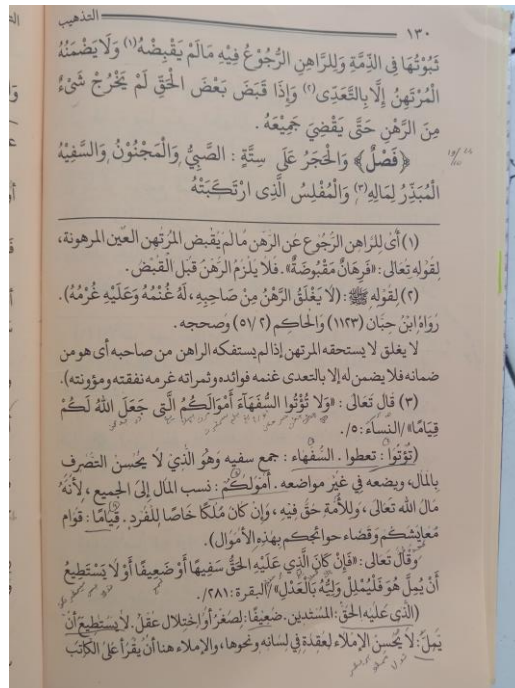 ١٣٠ التذهيب
ثَبُوتُهَا فِى الذِّمَّةِ وَلِلرَّاهِنِ الرُّجُوْعُ فِيْهِ مَالَمْ يَقْبِضْهُ(١) وَلَا يَضْمَنُهُ
الْمُرْتَهِنُ إِلَّا بِالتَّعَدِّى(٢) وَإِذَا قَبَضَ بَعْضَ الْحَقِّ لَمْ يَخْرُجْ شَىْءٌ
مِنَ الرَّهْنِ حَتَّى يَقْضِيَ جَمِيْعَهُ .
﴿فَصْلٌ﴾ وَالْحَجَرُ عَلَى سِتَّةٍ : الصَّبِيُّ وَالْمَجْنُوْنُ وَالسَّفِيْهُ
الْمُبَذِّرُ لِمَالِهِ(٣) وَالْمُفْلِسُ الَّذِى ارْتَكَبَتْهُ
(١) أى للراهن الرجوع عن الرهن مالم يقبض المرتهن العين المرهونة،
لقوله تعالى : «فَرِهَانٌ مَقْبُوضَةٌ» . فلا يلزم الرهن قبل القبض.
(٢) لقوله ﷺ : (لَا يَغْلَقُ الرَّهْنُ مِنْ صَاحِبِهِ، لَهُ غُنْمُهُ وَعَلَيْهِ غُرْمُهُ).
رواه ابن حبان (١١٢٣) والحاكم (٥١/٢) وصححه.
لا يغلق لا يستحقه المرتهن إذا لم يستفكه الراهن من صاحبه أى هو من
ضمانه فلا يضمن له إلا بالتعدى غنمه فوائده وثمراته غرمه نفقته ومؤونته).
(٣) قال تعالى : «وَلَا تُؤْتُوا السُّفَهَآءَ أَمْوَالَكُمُ الَّتِى جَعَلَ اللهُ لَكُمْ
قِيَامًا» /النساء: ٥/.
(تُؤْتُوا : تعطوا . السُّفَهَاء : جمع سفيه وهُو الَّذيْ لَا يحُسنُ التَّصَرف
بِالمال، ويضعه في غير مواضعه . أموَالَكُمْ : نسب المال إلىَ الجميع ، لأنهُ
مالُ الله تعَالى، وَللأمَّة حَقٌّ فيه ، وَإن كان مُلكًا خَاصًّا لِلفَرد . قِيَامًا : قوام
مَعايشكُم وَقضاء حوائجكم بهذِهِ الأموَال).
وقَال تعَالى : «فَإِنْ كَانَ الَّذِي عَلَيْهِ الْحَقُّ سَفِيهًا أَوْ ضَعِيفًا أَوْ لَا يَسْتَطِيعُ
أَنْ يُمِلَّ هُوَ فَلْيُمْلِلْ وَلِيُّهُ بِالْعَدْلِ» /البقرة : ٢٨١/.
(الذي عَليه الحَق : المستدين . ضعيفًا : لِصغَر أو اختِلال عَقل . لا يستطيع أن
يُمِلَّ : لَا يُحسنُ الإملاء لِعقدة في لسانه ونحوها، والإملاء هنا أن يقرأ على الكاتب